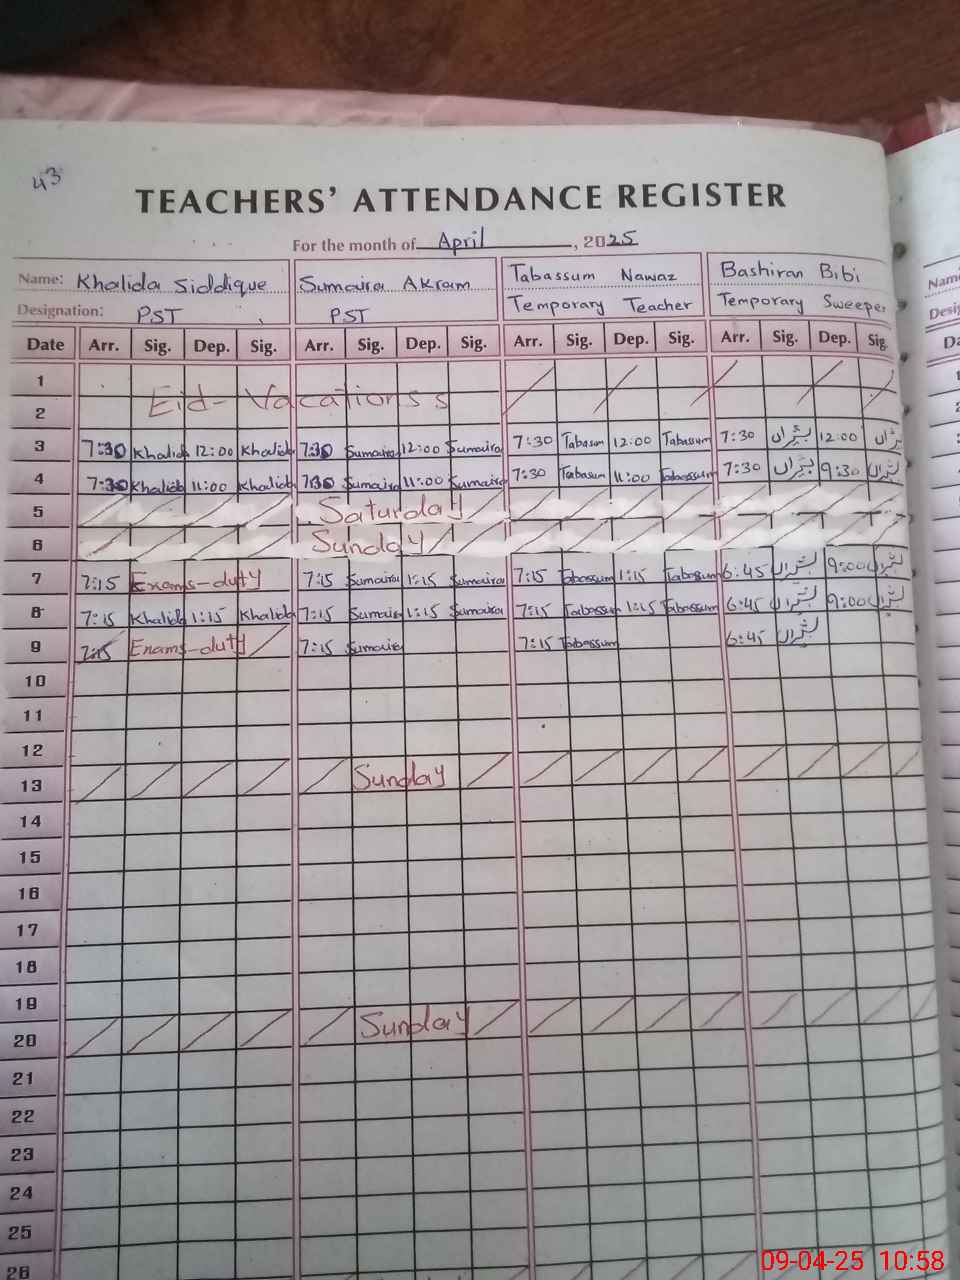 43
TEACHERS' ATTENDANCE REGISTER
For the month of April, 2025
Name: Khalida Siddique Sumaira Akram Tabassum Nawaz Bashiran Bibi
Designation: PST PST Temporary Teacher Temporary Sweeper
Date Arr. Sig. Dep. Sig. Arr. Sig. Dep. Sig. Arr. Sig. Dep. Sig. Arr. Sig. Dep. Sig.
1
Eid-Vacations s
2
3 7:30 Khalid 12:00 Khalid 7:30 Sumaira 12:00 Sumaira 7:30 Tabasum 12:00 Tabassum 7:30 بشراں 12:00 بشراں
4 7:30 Khalid 11:00 Khalid 7:30 Sumaira 11:00 Sumaira 7:30 Tabasum 11:00 Tabassum 7:30 بشراں 9:30 بشراں
5 Saturday
6 Sunday
7 7:15 Exams-duty 7:15 Sumaira 1:15 Sumaira 7:15 Tabassum 1:15 Tabassum 6:45 بشراں 9:00 بشراں
8 7:15 Khalid 1:15 Khalid 7:15 Sumaira 1:15 Sumaira 7:15 Tabassum 1:15 Tabassum 6:45 بشراں 9:00 بشراں
9 7:15 Exams-duty 7:15 Sumaira 7:15 Tabassum 6:45 بشراں
10
11
12
13 Sunday
14
15
16
17
18
19
20 Sunday
21
22
23
24
25
26
Name
Desig
Da
09-04-25 10:58